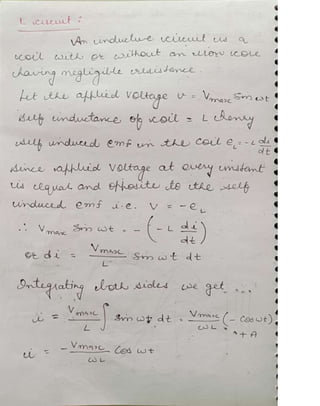 L circuit :
An inductive circuit is a
coil with or without an iron core
having negligible resistance.
Let the applied voltage v = Vmax Sin ωt
Self inductance of coil = L henry
self induced emf in the coil eL = -L di/dt
Since applied voltage at every instant
is equal and opposite to the self
induced emf i.e. V = -eL
∴ Vmax Sin ωt = - (-L di/dt)
or di = Vmax/L Sin ωt dt
Integrating both sides we get ...
i = Vmax/L ∫ Sin ωt dt = Vmax/ωL (- Cos ωt) + A
i = -Vmax/ωL Cos ωt